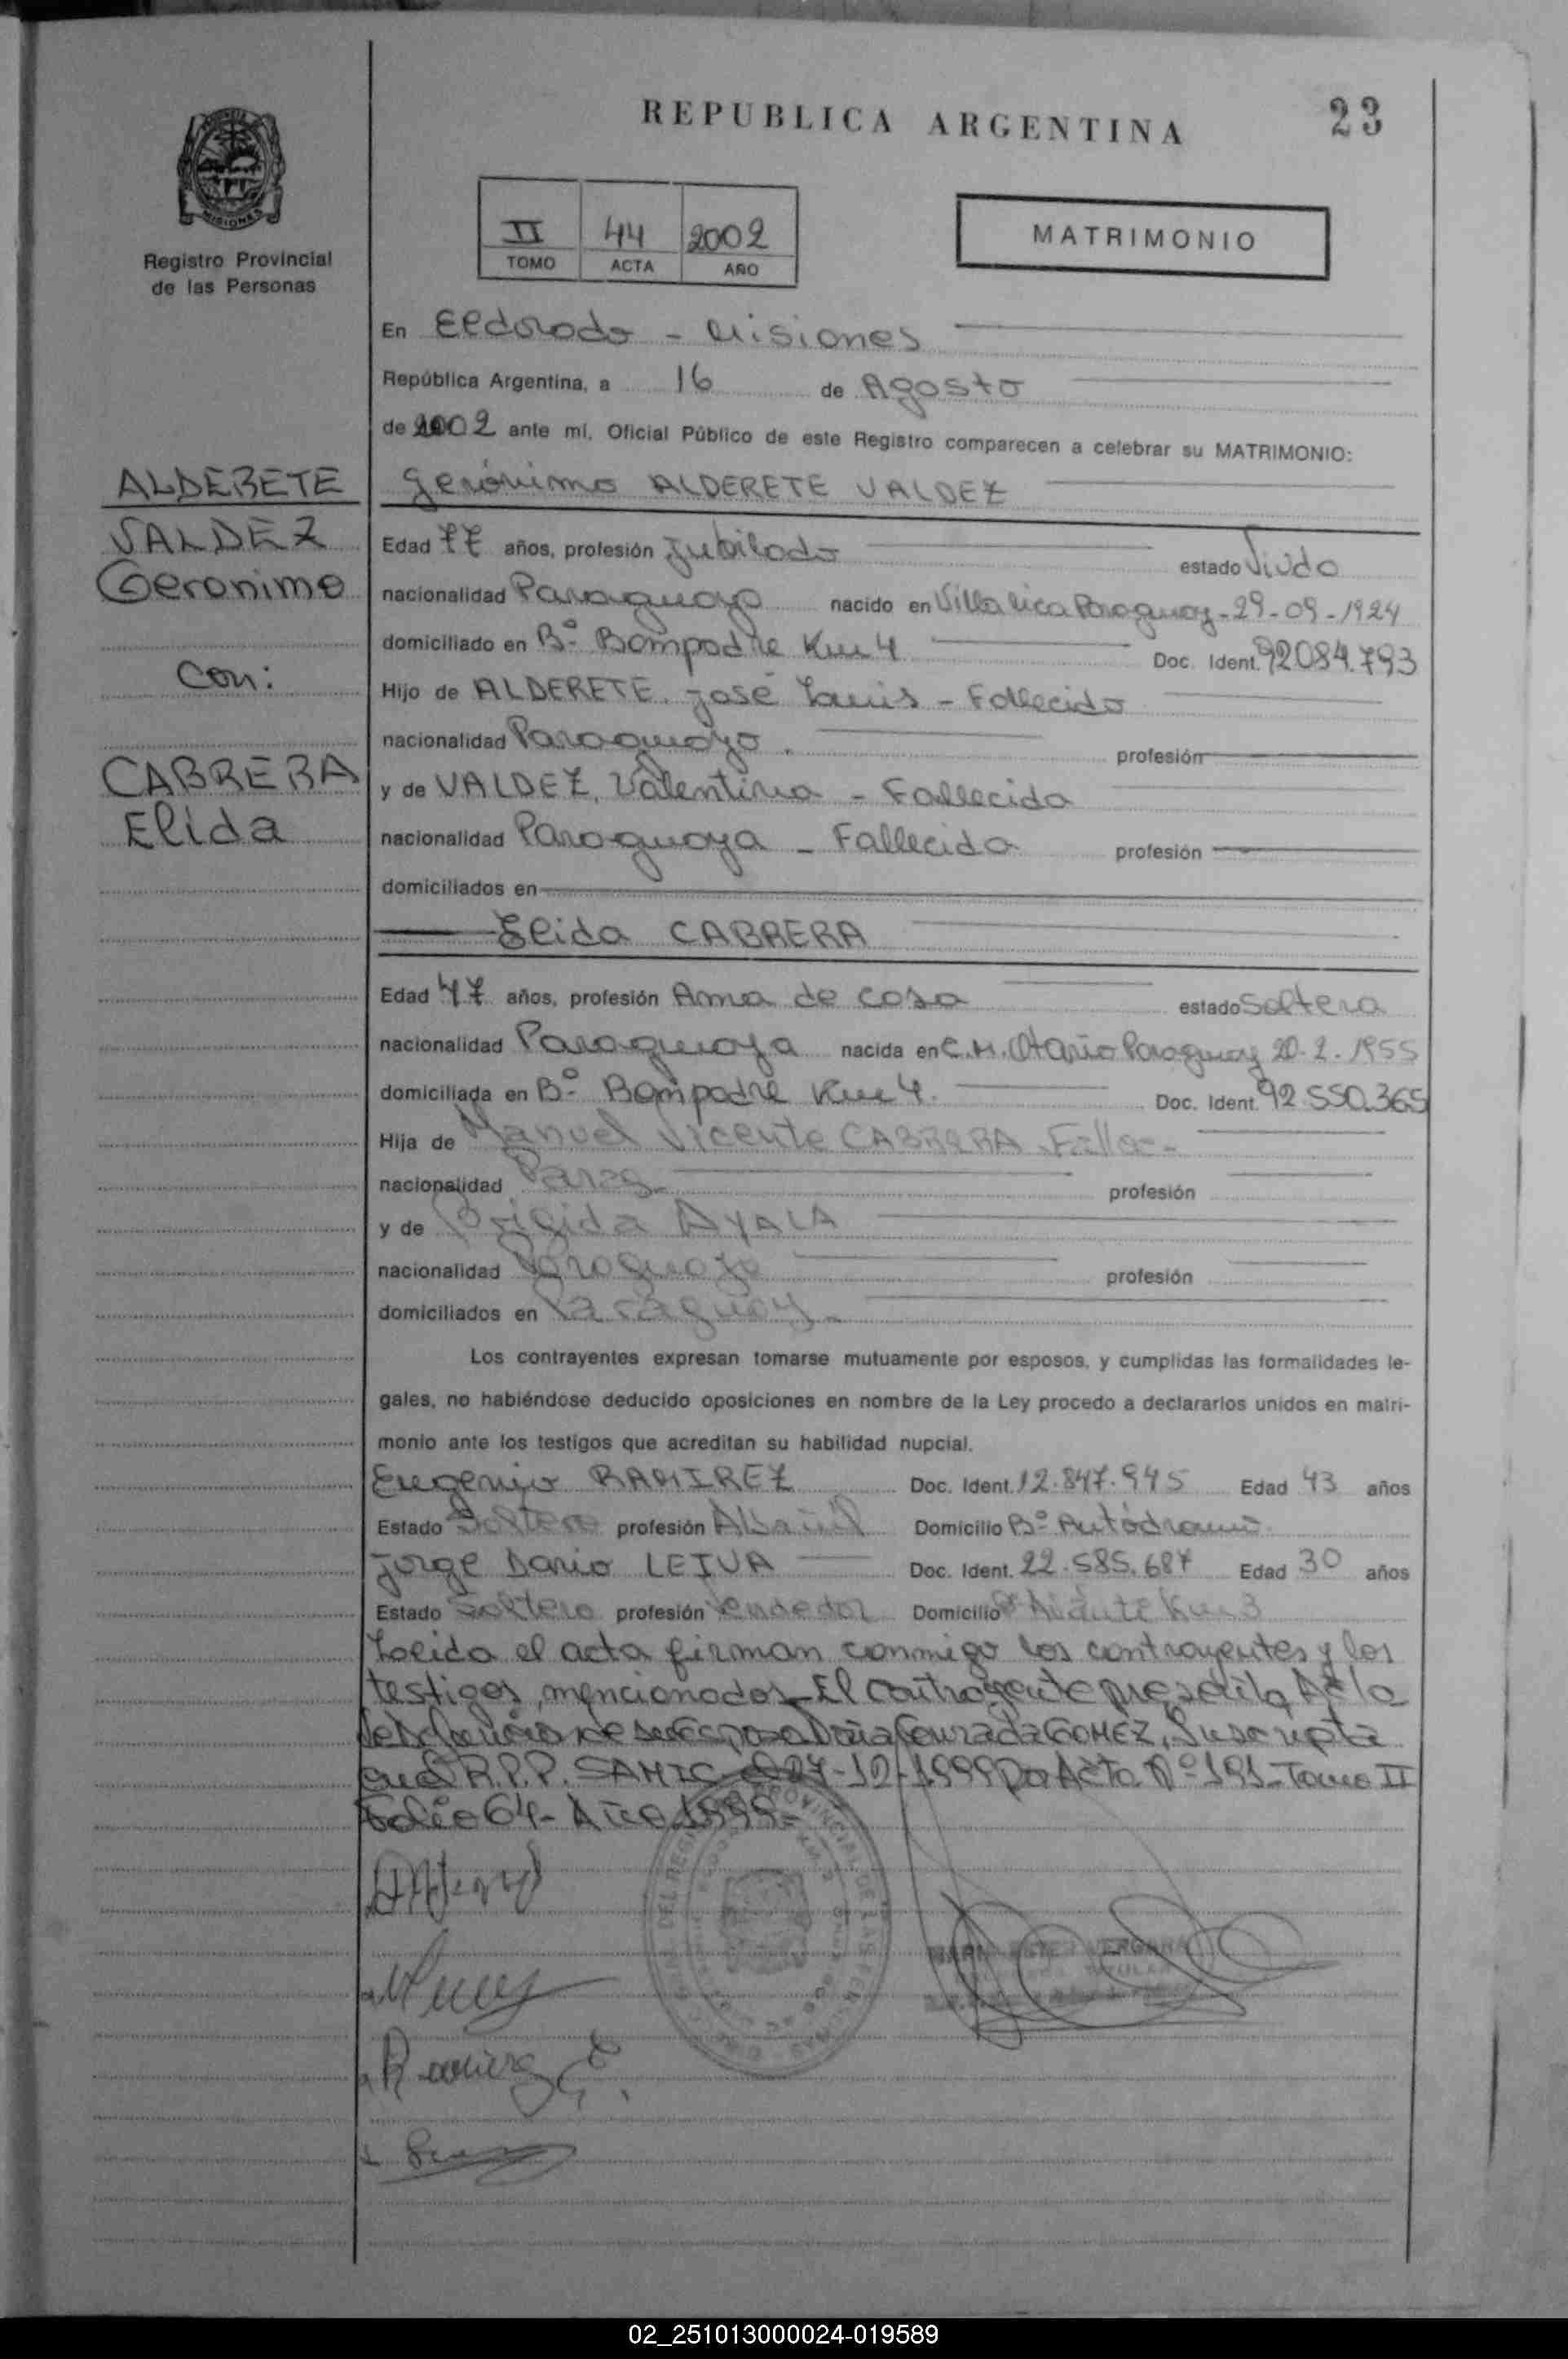 REPUBLICA ARGENTINA
23
MISIONES
Registro Provincial
de las Personas
II 44 2002
TOMO ACTA AÑO
MATRIMONIO
En Eldorado - Misiones
República Argentina, a 16 de Agosto
de 2002 ante mí, Oficial Público de este Registro comparecen a celebrar su MATRIMONIO:
ALDERETE
VALDEZ
Geronimo
Con:
CABRERA
Elida
Gerónimo ALDERETE VALDEZ
Edad 77 años, profesión Jubilado estado Viudo
nacionalidad Paraguayo nacido en Villa rica Paraguay - 29-09-1924
domiciliado en Bº Bompadre Km 4 Doc. Ident. 92084.793
Hijo de ALDERETE, José Luis - Fallecido
nacionalidad Paraguayo. profesión
y de VALDEZ, Valentina - Fallecida
nacionalidad Paraguaya - Fallecida profesión
domiciliados en
Elida CABRERA
Edad 47 años, profesión Ama de casa estado Soltera
nacionalidad Paraguaya nacida en C.M. Otaño Paraguay 20-2-1955
domiciliada en Bº Bompadre Km 4. Doc. Ident. 92.550.365
Hija de Manuel Vicente CABRERA Fallec-
nacionalidad Parag- profesión
y de Brigida AYALA
nacionalidad Paraguaya profesión
domiciliados en Paraguay -
Los contrayentes expresan tomarse mutuamente por esposos, y cumplidas las formalidades le-
gales, no habiéndose deducido oposiciones en nombre de la Ley procedo a declararlos unidos en matri-
monio ante los testigos que acreditan su habilidad nupcial.
Eugenio RAMIREZ Doc. Ident. 12.847.945 Edad 43 años
Estado Soltero profesión Albañil Domicilio Bº Autódromo.
Jorge Dario LEIVA Doc. Ident. 22.585.687 Edad 30 años
Estado Soltero profesión Vendedor Domicilio Km 3
Leída el acta firman conmigo los contrayentes y los
testigos mencionados - El contrayente presenta Acta
de defunción de su Esposa Doña Conrada GOMEZ, Inscripta
en el R.P.P. SAMIC - 27-12-1999 Por Acta Nº 191 - Tomo II
Folio 64 - Año 1999 -
Ramirez E.
VERGARA
TITULAR
02_251013000024-019589